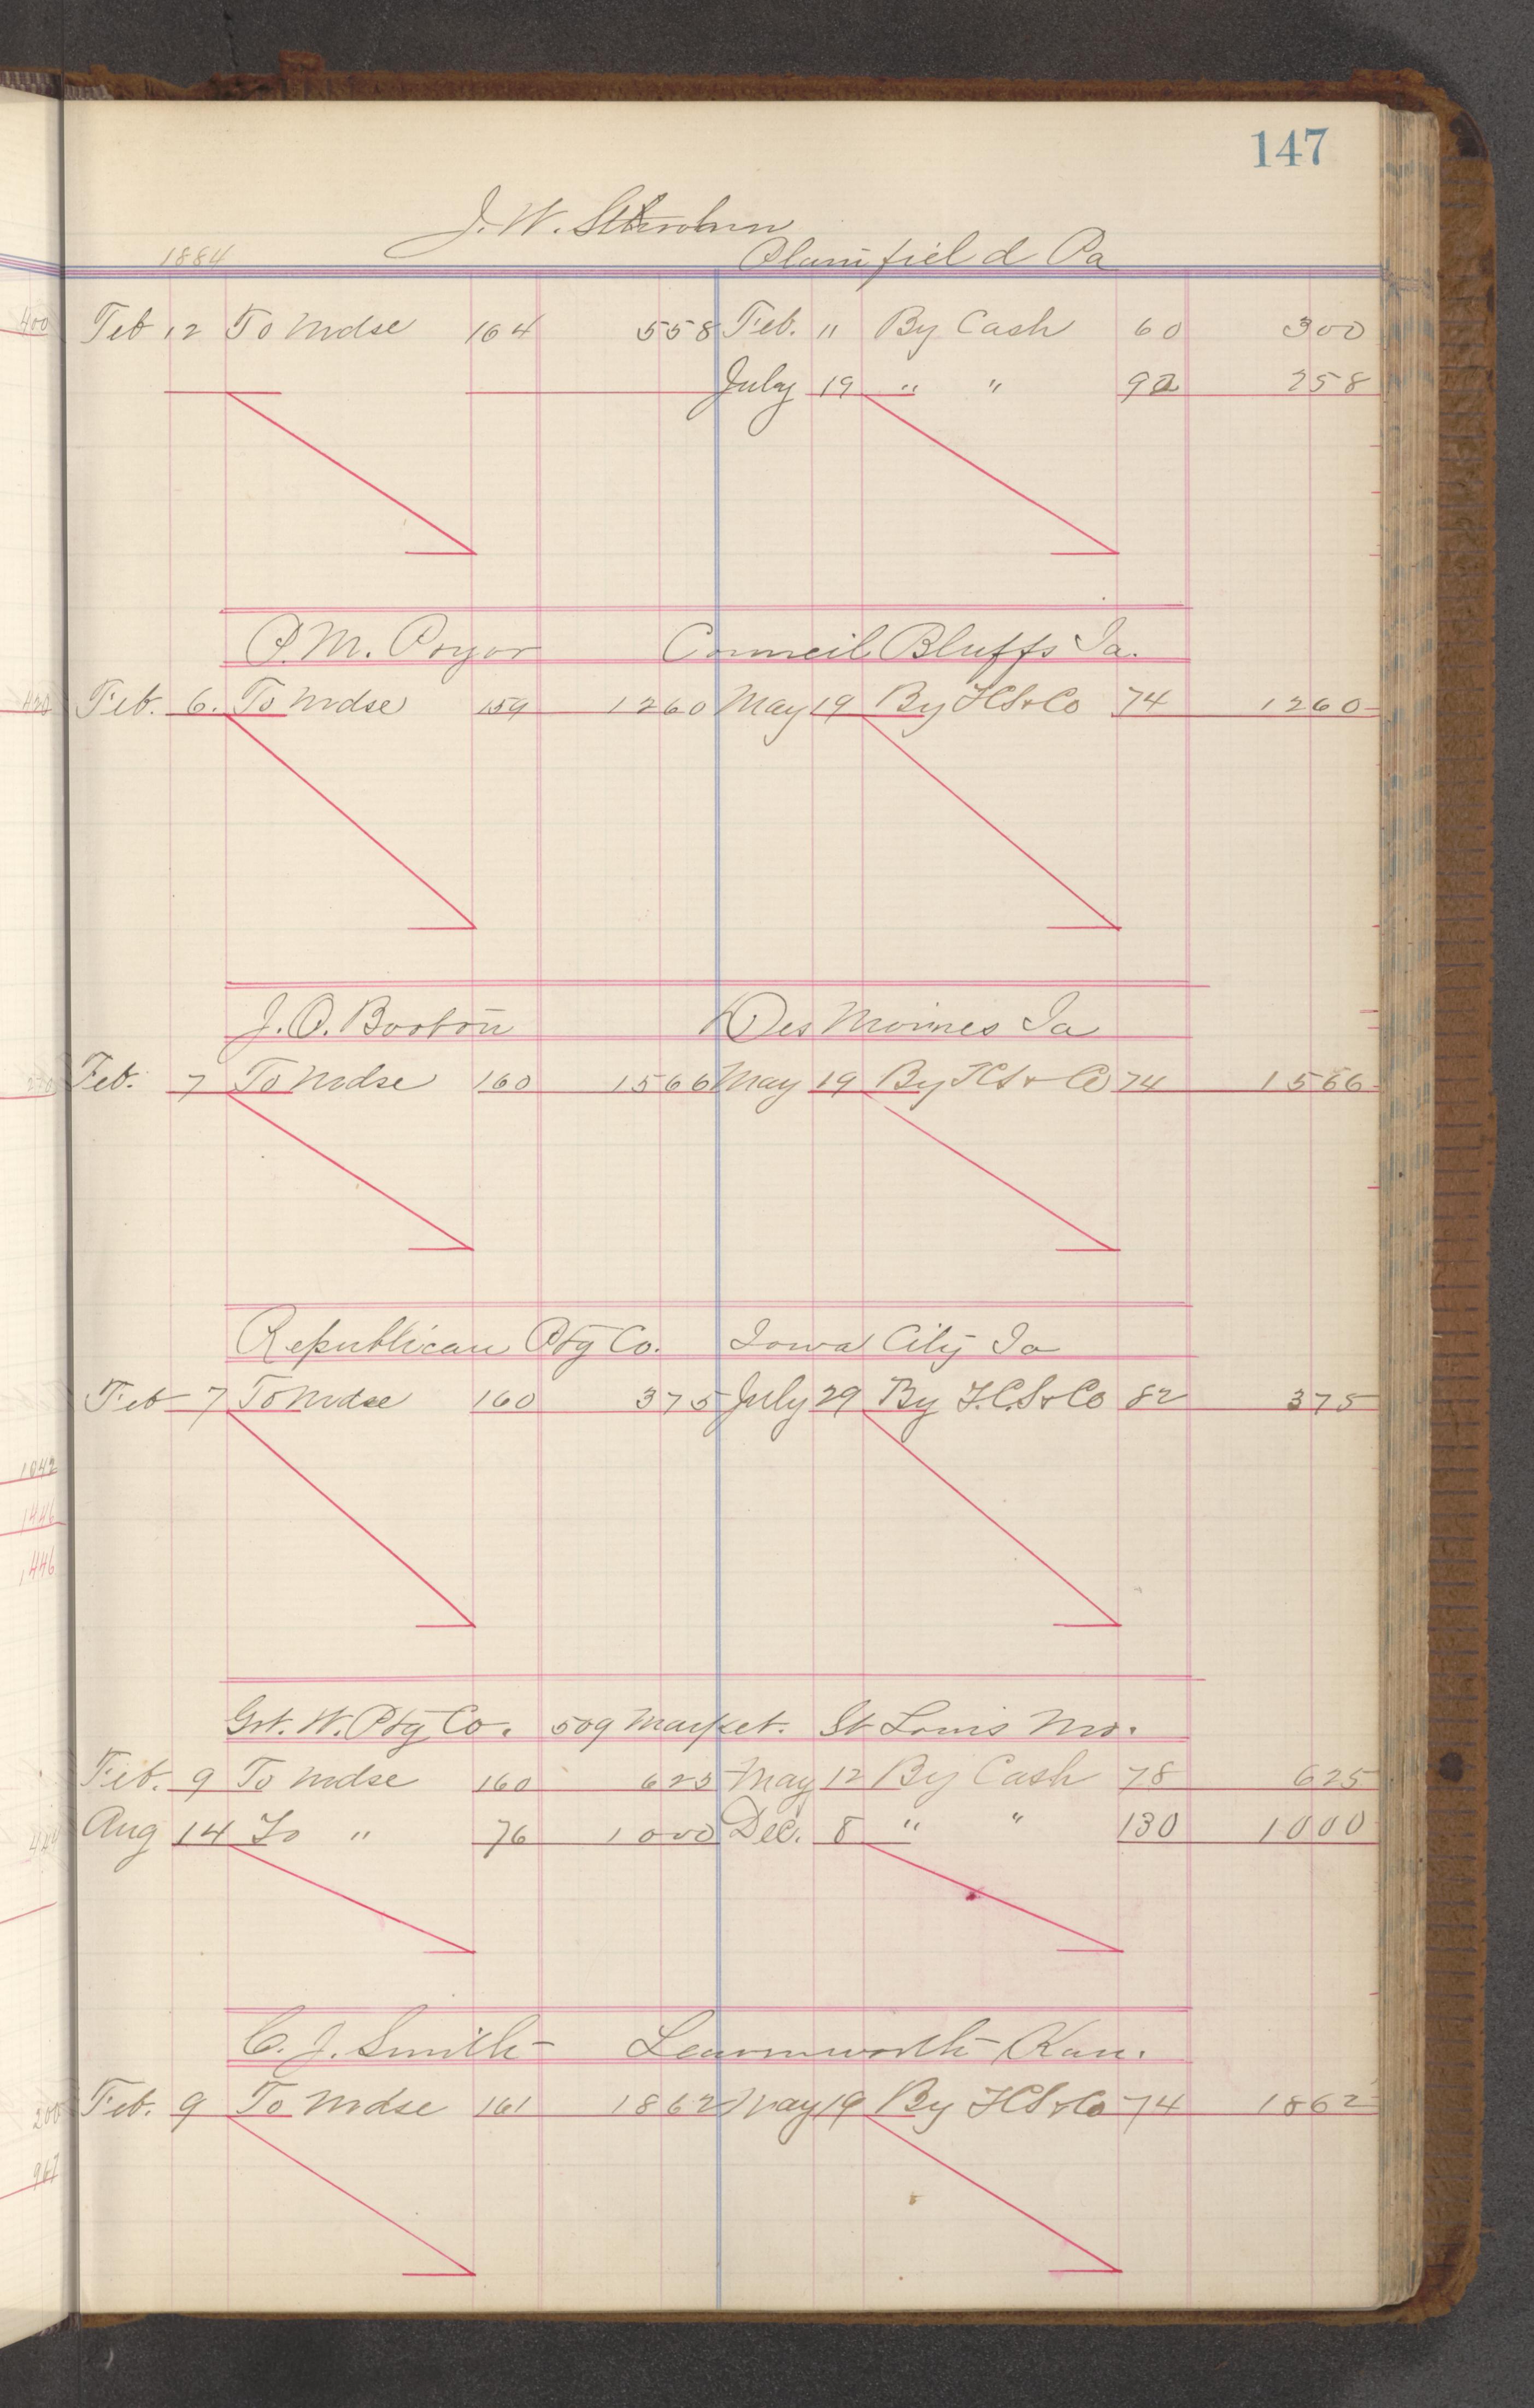 147
J. W. Strohm
1884 Plainfield Pa
400 Feb 12 To Mdse 164 558 Feb. 11 By Cash 60 300
July 19 " " 92 258
P. M. Pryor Council Bluffs Ia.
420 Feb. 6. To Mdse 159 1260 May 19 By HCS&Co 74 1260
J. O. Boobon Des Moines Ia
Feb. 7 To Mdse 160 1566 May 19 By HCS&Co 74 1566
Republican Ptg Co. Iowa City Ia
Feb 7 To Mdse 160 375 July 29 By H.C.S&Co 82 375
1042
1446
1446
Grt. W. Ptg Co. 509 Market. St Louis Mo.
Feb. 9 To Mdse 160 625 May 12 By Cash 78 625
Aug 14 To " 76 1000 Dec. 8 " " 130 1000
C. J. Smith Leavenworth Kan.
200 Feb. 9 To Mdse 161 1862 May 19 By HCS&Co 74 1862
967